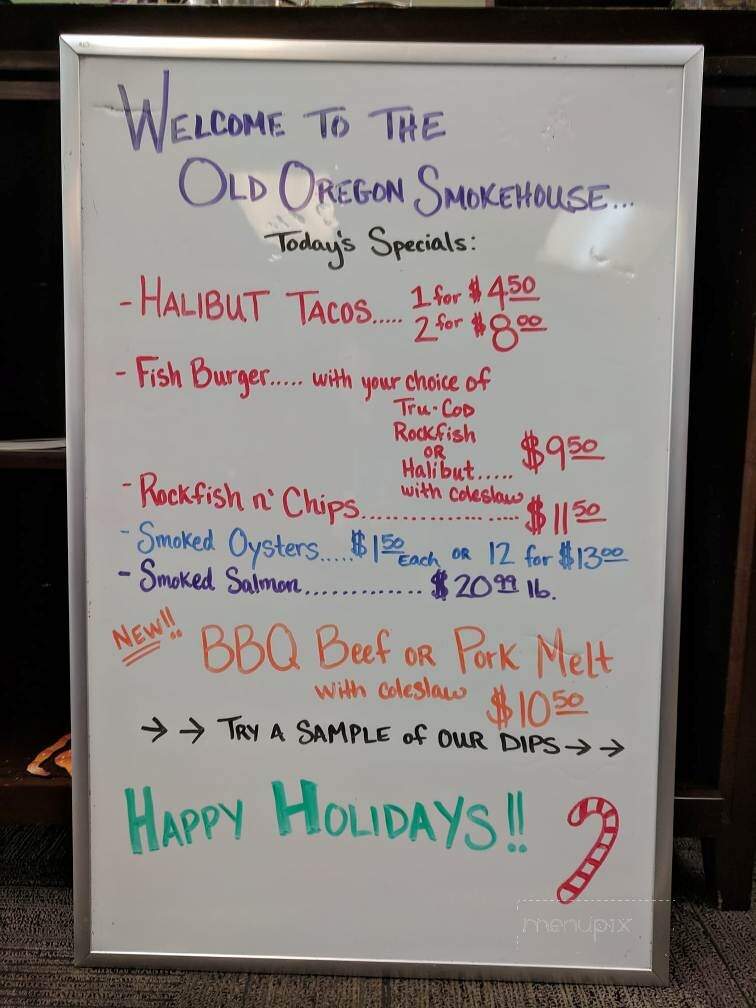 WELCOME TO THE
OLD OREGON SMOKEHOUSE...
Today's Specials:
- HALIBUT TACOS..... 1 for $4.50
2 for $8.00
- Fish Burger..... with your choice of
Tru-Cod
Rockfish
OR
Halibut..... $9.50
with coleslaw
- Rockfish n' Chips.................. $11.50
- Smoked Oysters..... $1.50 Each OR 12 for $13.00
- Smoked Salmon............. $20.99 lb.
NEW!! BBQ Beef OR Pork Melt
with coleslaw $10.50
→ → TRY A SAMPLE of OUR DIPS → →
HAPPY HOLIDAYS!!
menupix